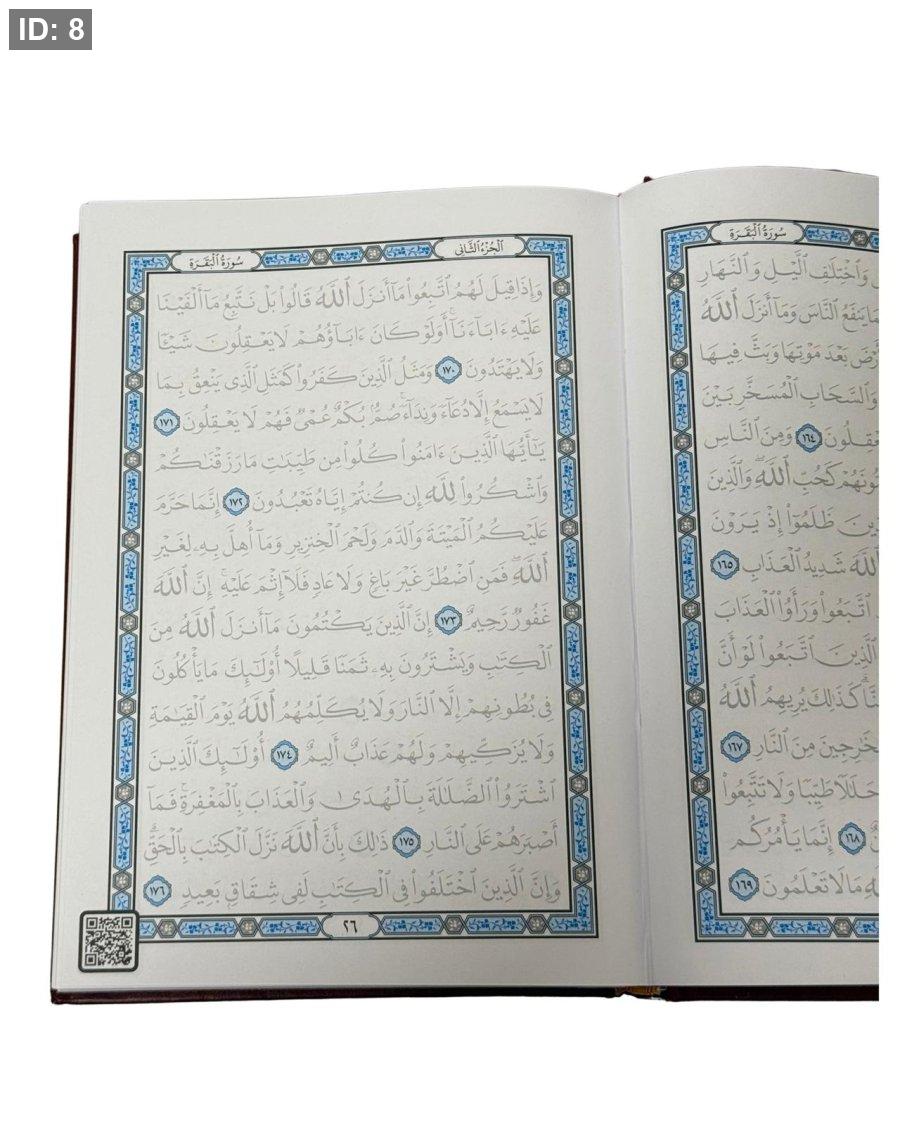 سُورَةُ الْبَقَرَةِ
وَٱخْتِلَٰفِ ٱلَّيْلِ وَٱلنَّهَارِ
يَنفَعُ ٱلنَّاسَ وَمَآ أَنزَلَ ٱللَّهُ
بَعْدَ مَوْتِهَا وَبَثَّ فِيهَا
وَٱلسَّحَابِ ٱلْمُسَخَّرِ بَيْنَ
١٦٤ وَمِنَ ٱلنَّاسِ
كَحُبِّ ٱللَّهِۖ وَٱلَّذِينَ
ظَلَمُوٓا۟ إِذْ يَرَوْنَ
ٱللَّهَ شَدِيدُ ٱلْعَذَابِ ١٦٥
ٱتَّبَعُوا۟ وَرَأَوُا۟ ٱلْعَذَابَ
ٱلَّذِينَ ٱتَّبَعُوا۟ لَوْ أَنَّ
كَذَٰلِكَ يُرِيهِمُ ٱللَّهُ
مِنَ ٱلنَّارِ ١٦٧
حَلَٰلًا طَيِّبًا وَلَا تَتَّبِعُوا۟
١٦٨ إِنَّمَا يَأْمُرُكُم
مَا لَا تَعْلَمُونَ ١٦٩
الْجُزْءُ الثَّانِي سُورَةُ الْبَقَرَةِ
وَإِذَا قِيلَ لَهُمُ ٱتَّبِعُوا۟ مَآ أَنزَلَ ٱللَّهُ قَالُوا۟ بَلْ نَتَّبِعُ مَآ أَلْفَيْنَا
عَلَيْهِ ءَابَآءَنَآۚ أَوَلَوْ كَانَ ءَابَآؤُهُمْ لَا يَعْقِلُونَ شَيْـًٔا
وَلَا يَهْتَدُونَ ١٧٠ وَمَثَلُ ٱلَّذِينَ كَفَرُوا۟ كَمَثَلِ ٱلَّذِى يَنْعِقُ بِمَا
لَا يَسْمَعُ إِلَّا دُعَآءً وَنِدَآءًۚ صُمٌّۢ بُكْمٌ عُمْىٌ فَهُمْ لَا يَعْقِلُونَ ١٧١
يَٰٓأَيُّهَا ٱلَّذِينَ ءَامَنُوا۟ كُلُوا۟ مِن طَيِّبَٰتِ مَا رَزَقْنَٰكُمْ
وَٱشْكُرُوا۟ لِلَّهِ إِن كُنتُمْ إِيَّاهُ تَعْبُدُونَ ١٧٢ إِنَّمَا حَرَّمَ
عَلَيْكُمُ ٱلْمَيْتَةَ وَٱلدَّمَ وَلَحْمَ ٱلْخِنزِيرِ وَمَآ أُهِلَّ بِهِۦ لِغَيْرِ
ٱللَّهِۖ فَمَنِ ٱضْطُرَّ غَيْرَ بَاغٍ وَلَا عَادٍ فَلَآ إِثْمَ عَلَيْهِۚ إِنَّ ٱللَّهَ
غَفُورٌ رَّحِيمٌ ١٧٣ إِنَّ ٱلَّذِينَ يَكْتُمُونَ مَآ أَنزَلَ ٱللَّهُ مِنَ
ٱلْكِتَٰبِ وَيَشْتَرُونَ بِهِۦ ثَمَنًا قَلِيلًا أُو۟لَٰٓئِكَ مَا يَأْكُلُونَ
فِى بُطُونِهِمْ إِلَّا ٱلنَّارَ وَلَا يُكَلِّمُهُمُ ٱللَّهُ يَوْمَ ٱلْقِيَٰمَةِ
وَلَا يُزَكِّيهِمْ وَلَهُمْ عَذَابٌ أَلِيمٌ ١٧٤ أُو۟لَٰٓئِكَ ٱلَّذِينَ
ٱشْتَرَوُا۟ ٱلضَّلَٰلَةَ بِٱلْهُدَىٰ وَٱلْعَذَابَ بِٱلْمَغْفِرَةِۚ فَمَآ
أَصْبَرَهُمْ عَلَى ٱلنَّارِ ١٧٥ ذَٰلِكَ بِأَنَّ ٱللَّهَ نَزَّلَ ٱلْكِتَٰبَ بِٱلْحَقِّۗ
وَإِنَّ ٱلَّذِينَ ٱخْتَلَفُوا۟ فِى ٱلْكِتَٰبِ لَفِى شِقَاقٍۭ بَعِيدٍ ١٧٦
٢٦
ID: 8